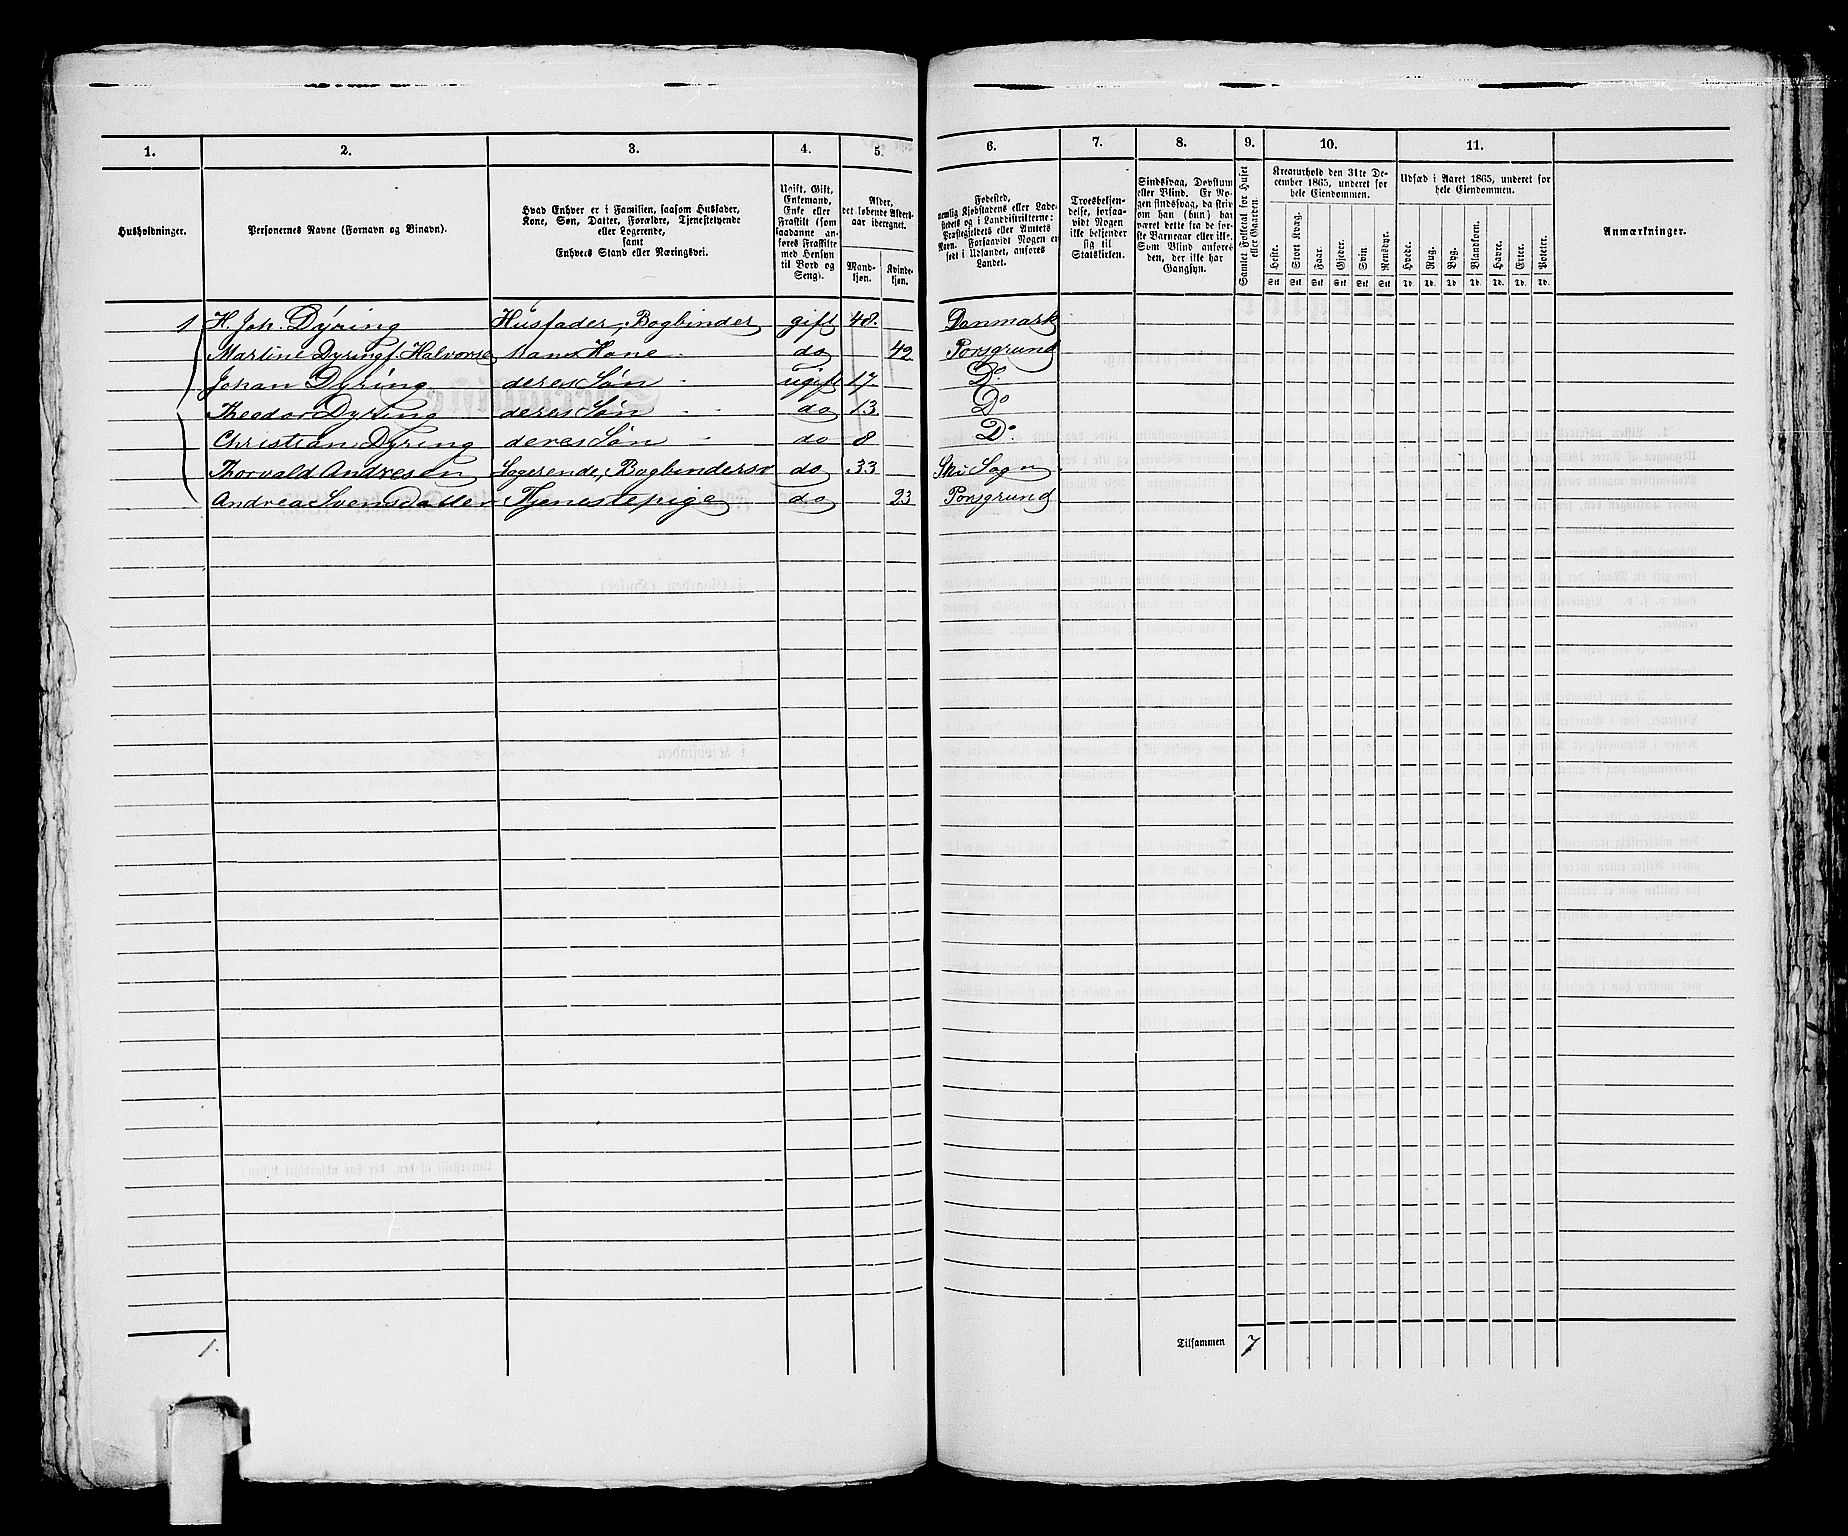 1. 2. 3. 4. 5. 6. 7. 8. 9. 10. 11.
Husholdninger.
Personernes Navne (Fornavn og Binavn).
Hvad Enhver er i Familien, saasom Husfader,
Kone, Søn, Datter, Forældre, Tjenestetyende
eller Logerende,
samt
Enhvers Stand eller Næringsvei.
Ugift, Gift,
Enkemand,
Enke eller
Fraskilt (som
saadanne an-
føres Fraskilte
med Hensyn
til Bord og
Seng).
Alder,
det løbende Alders-
aar iberegnet.
Mand-
kjøn.
Kvinde-
kjøn.
Fødested,
nemlig Kjøbstadens eller Lade-
stedets og i Landdistrikterne:
Præstegjeldets eller Amtets
Navn. Forsaavidt Nogen er
født i Udlandet, anføres
Landet.
Troesbekjen-
delse, forsaa-
vidt Nogen
ikke bekjender
sig til
Statskirken.
Sindssvag, Døvstum
eller Blind. Er No-
gen sindssvag, da skriv
om han (hun) har
været dette fra de før-
ste Barneaar eller ikke.
Som Blind anføres
den, der ikke har
Gangsyn.
Samlet Folketal for Huset
eller Gaarden.
Kreaturhold den 31te De-
cember 1865, underet for
hele Eiendommen.
Heste. Stort Kvæg. Faar. Gjeder. Svin. Rensdyr.
Stk Stk Stk Stk Stk Stk
Udsæd i Aaret 1865, underet for
hele Eiendommen.
Hvede. Rug. Byg. Blandkorn. Havre. Erter. Poteter.
Td. Td. Td. Td. Td. Td. Td.
Anmærkninger.
1 H. Joh. Dÿring Husfader, Bogbinder gift 48. Danmark
Martine Dyring f. Halvorse hans Kone do 42 Porsgrund
Johan Dyring deres Søn ugift 17 Do
Theodor Dyring deres Søn do 13 Do
Christian Dyring deres Søn do 8 Do
Thorvald Andresen Logerende, Bogbindersv do 33 Ski Sogn
Andrea Svensdatter Tjenestepige do 23 Porsgrund
1. Tilsammen 7